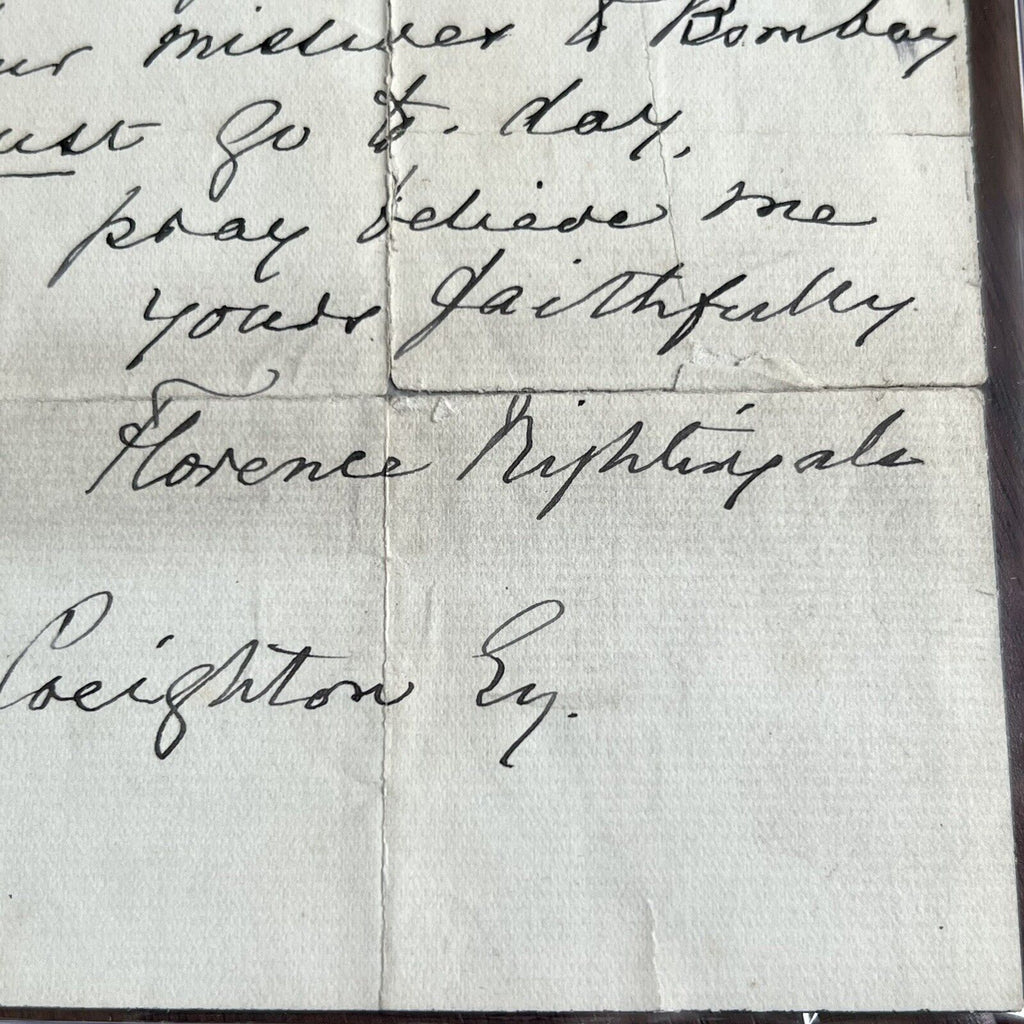 missives to Bombay
must go to-day,
pray believe me
yours faithfully
Florence Nightingale
Creighton Esq.